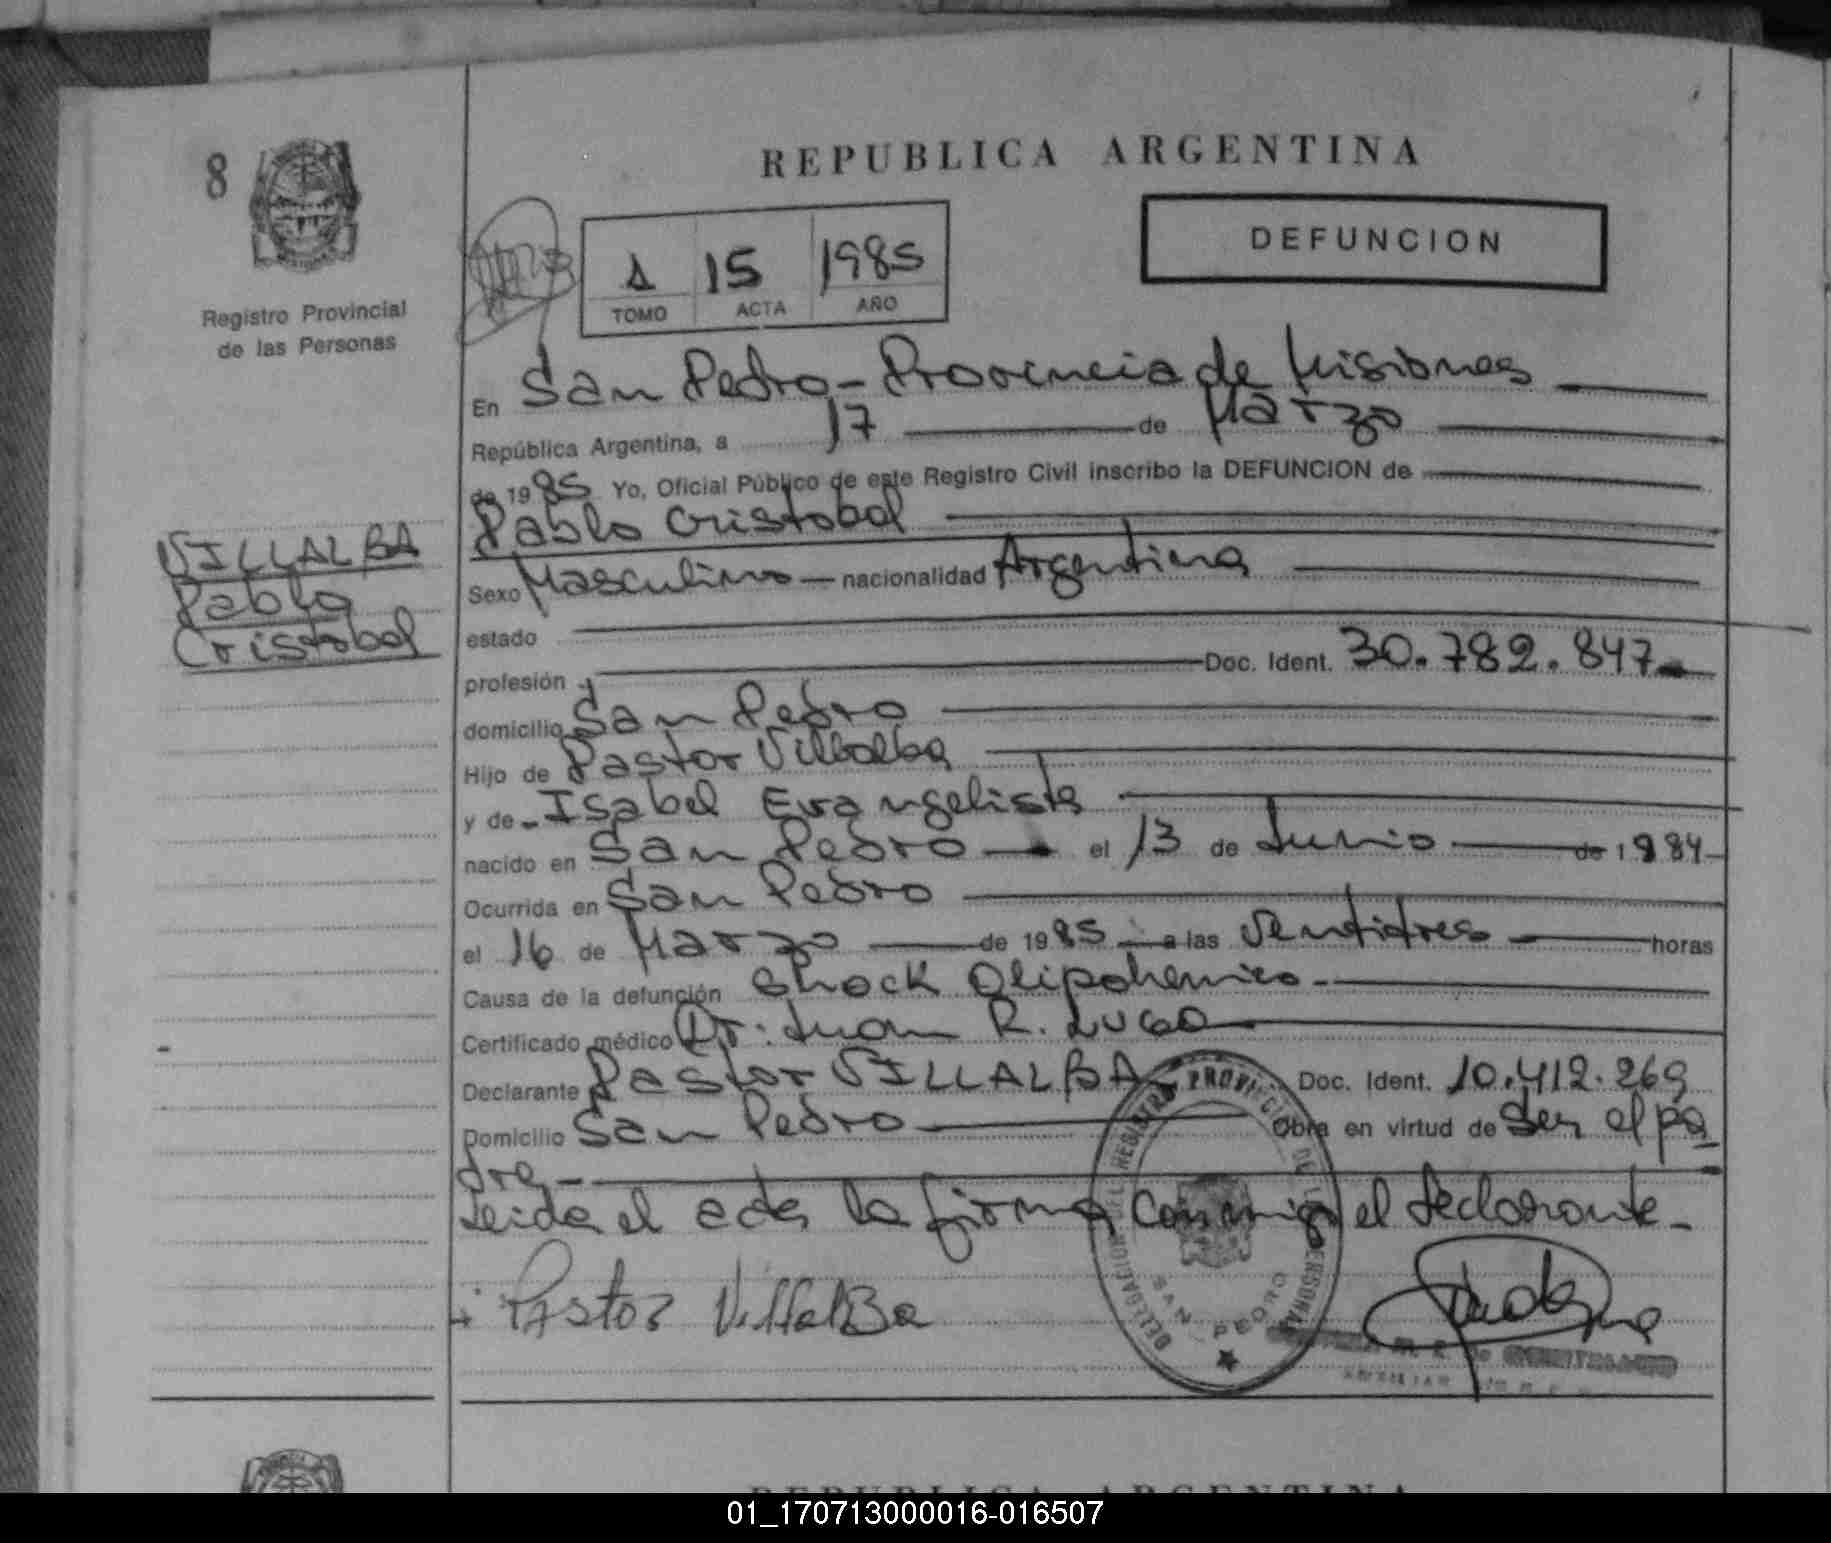 8
Registro Provincial
de las Personas
VILLALBA
Pablo
Cristobal
REPUBLICA ARGENTINA
DEFUNCION
1 15 1985
TOMO ACTA AÑO
En San Pedro - Provincia de Misiones
República Argentina, a 17 de Marzo
de 1985 Yo, Oficial Público de este Registro Civil inscribo la DEFUNCION de
Pablo Cristobal
Sexo Masculino — nacionalidad Argentina
estado
profesión Doc. Ident. 30.782.847
domicilio San Pedro
Hijo de Pastor Villalba
y de - Isabel Evangelista
nacido en San Pedro — el 13 de Junio — de 1984
Ocurrida en San Pedro
el 16 de Marzo — de 1985 — a las Ventidres — horas
Causa de la defunción Shock Olipohemico
Certificado médico Dr: Juan R. LUGO
Declarante Pastor VILLALBA Doc. Ident. 10.412.269
Domicilio San Pedro — Obra en virtud de Ser el pa
dre -
Leida el acta la firma conmigo el declarante -
Pastor Villalba
DELEGACION DEL REGISTRO PROVINCIAL DE LAS PERSONAS
SAN PEDRO
REPUBLICA ARGENTINA
01_170713000016-016507